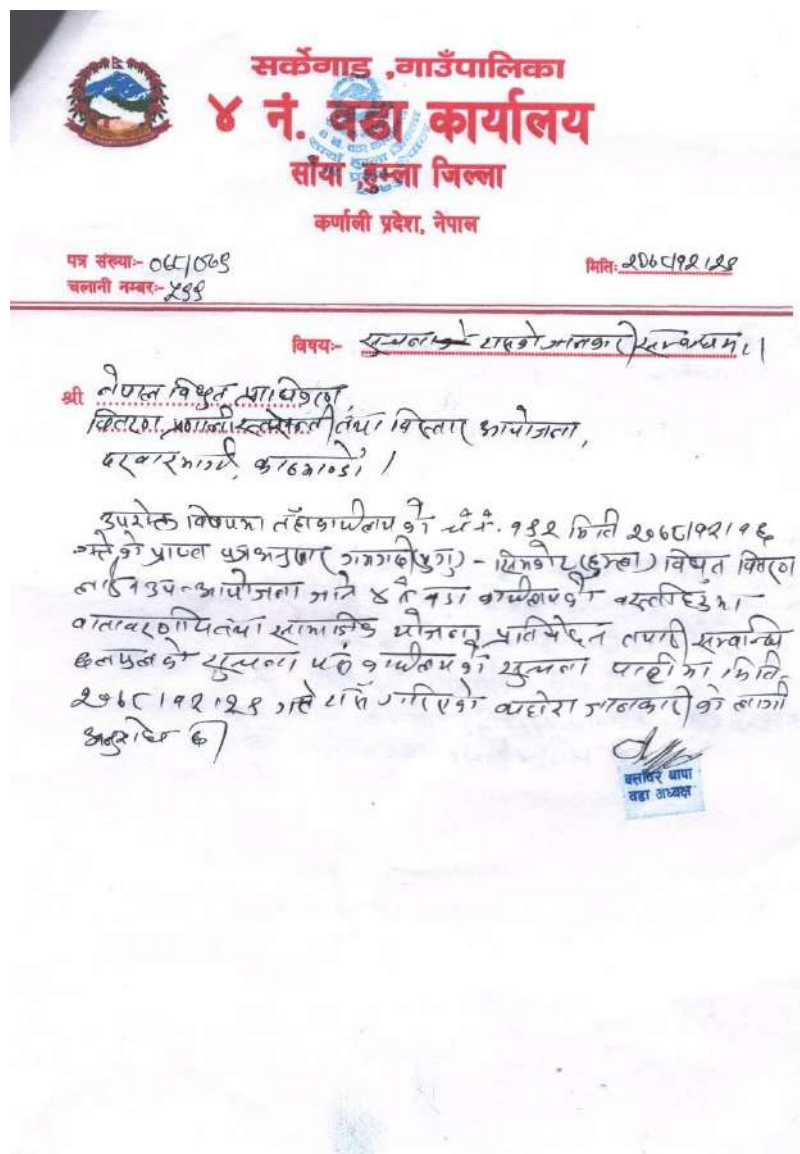 सर्केगाड ,गाउँपालिका
४ नं. वडा कार्यालय
साँया ,हुम्ला जिल्ला
कर्णाली प्रदेश, नेपाल
पत्र संख्याः- ०७८/०७९
मितिः २०७८/१२/२९
चलानी नम्बरः- ५९९
विषयः- सुचना टाँसको जानकारी सम्बन्धमा।
श्री नेपाल विधुत प्राधिकरण,
वितरण प्रणाली स्तरोन्नती तथा विस्तार आयोजना,
दरवारमार्ग, काठमाण्डौ ।
उपरोक्त विषयमा तहाँ कार्यालयको च.नं. १९२ मिति २०७८/१२/१६
गते को प्राप्त पत्र अनुसार गमगढी(मुगु) - सिमकोट(हुम्ला) विधुत वितरण
लाईन उप-आयोजना गर्न ४ नं वडा कार्यालयको वस्तीहरुमा
वातावरणीय तथा सामाजिक योजना प्रतिवेदन तयारी सम्बन्धि
छलफलको सुचना यस कार्यालयको सुचना पाटीमा मिति
२०७८/१२/२९ गते टाँस गरिएको व्यहोरा जानकारी को लागी
अनुरोध छ।
वडा अध्यक्ष